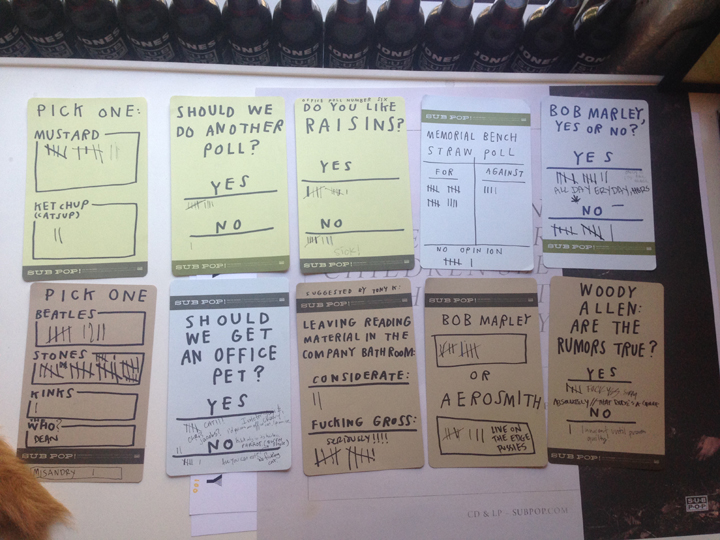 JONES
JONES
JONES
JONES
JONES
JONES
JONES
PICK ONE:
MUSTARD
KETCHUP
(CATSUP)
SUB POP
SHOULD WE
DO ANOTHER
POLL?
YES
NO
SUB POP
DO YOU LIKE
RAISINS?
YES
NO
SUB POP
SUB POP
MEMORIAL BENCH
STRAW POLL
FOR
AGAINST
NO OPINION
BOB MARLEY,
YES OR NO?
YES
ALL DAY ERYDAY
NO
SUB POP
PICK ONE
BEATLES
STONES
KINKS
THE WHO?
DEAN
SUB POP
MISANDRY
SUB POP
SHOULD
WE GET
AN OFFICE
PET?
YES
NO
SUGGESTED BY TONY K:
SUB POP
LEAVING READING
MATERIAL IN THE
COMPANY BATHROOM:
CONSIDERATE:
FUCKING GROSS:
SERIOUSLY!!!!
SUB POP
BOB MARLEY
OR
AEROSMITH
LIVE ON
THE EDGE
PUSSIES
WOODY
ALLEN:
ARE THE
RUMORS TRUE?
YES
NO
SUB POP
CD & LP - SUBPOP.COM
SUB
POP